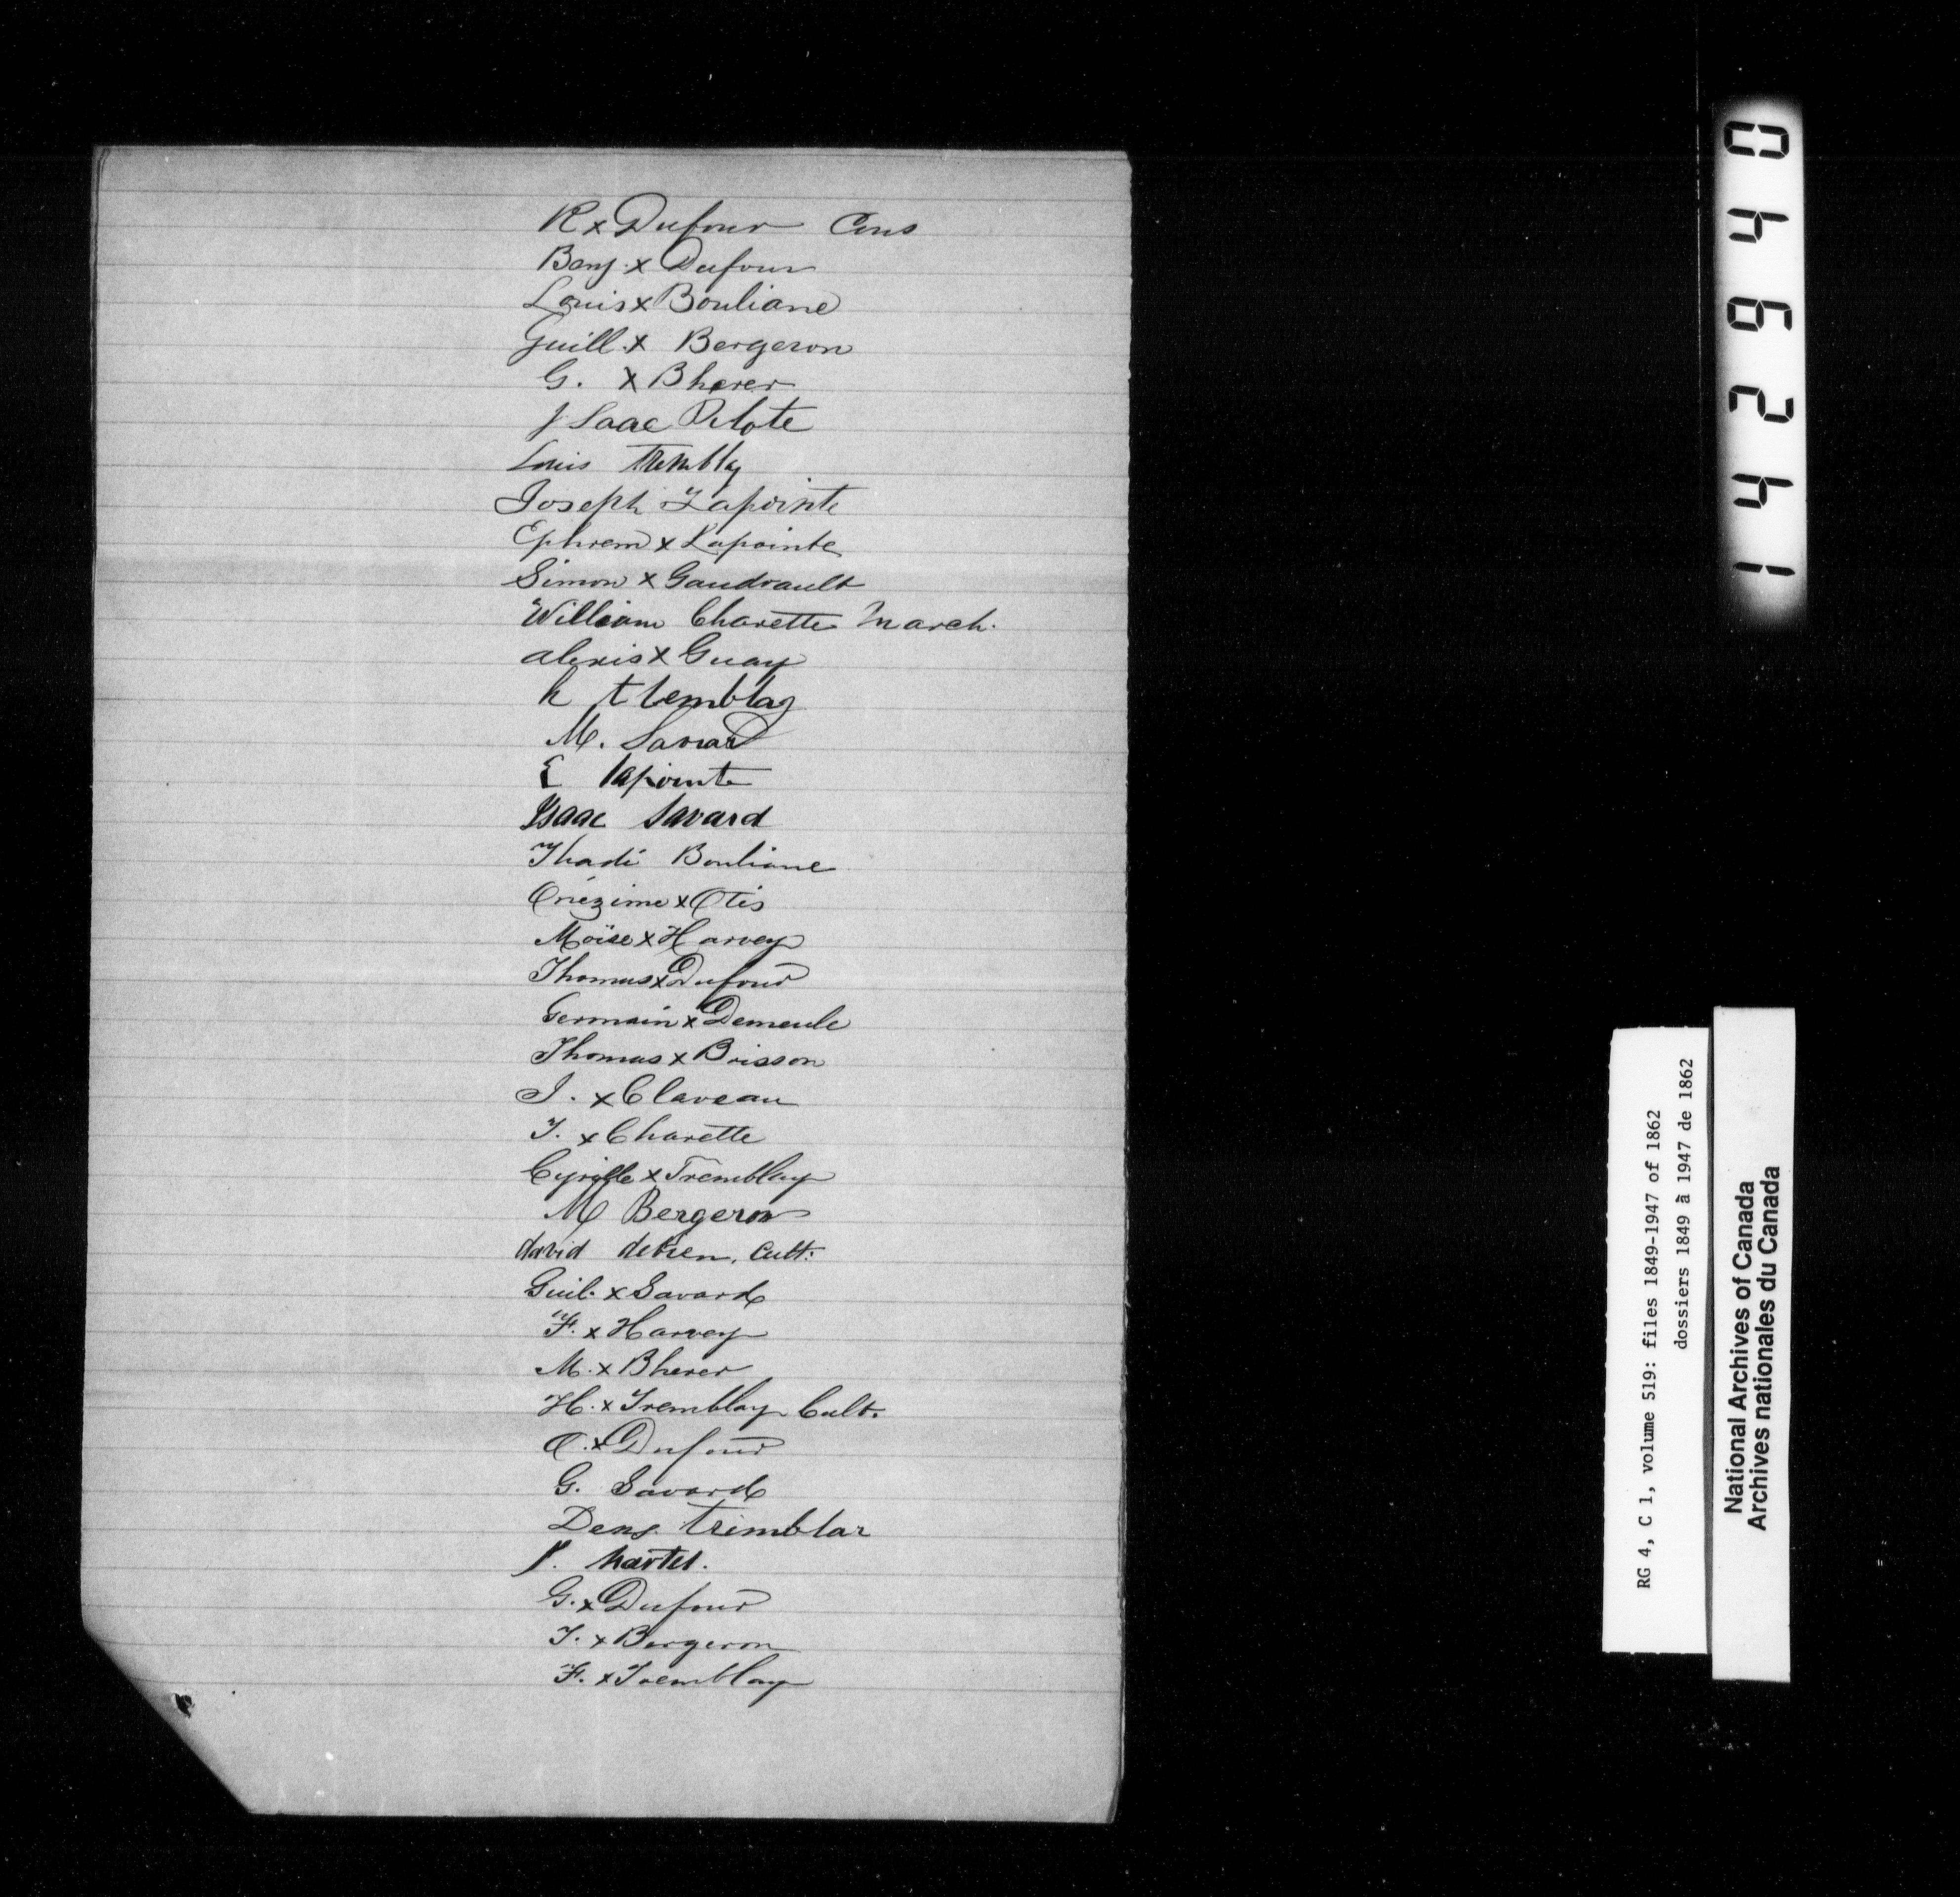 R x Dufour Cons
Benj. x Dufour
Louis x Bouliane
Guill. x Bergeron
G. x Bherer
Isaac Pilote
Louis Trembly
Joseph Lapointe
Ephrem x Lapointe
Simon x Gaudrault
William Charette March.
alexis x Guay
h tlemblay
M. Savard
E lapointe
Isaac Savard
Thadé Bouliane
Onézime x Otis
Moïse x Harvey
Thomas x Dufour
Germain x Demeule
Thomas x Brisson
J. x Claveau
T. x Charette
Cyrille x Tremblay
M Bergeron
david dechen, Cult.
Guil. x Savard
F. x Harvey
M. x Bherer
H. x Tremblay Cult.
O. x Dufour
G. Savard
Deny tremblar
J. hartel.
G. x Dufour
T. x Bergeron
F. x Tremblay
042641
RG 4, C 1, volume 519: files 1849-1947 of 1862
dossiers 1849 à 1947 de 1862
National Archives of Canada
Archives nationales du Canada